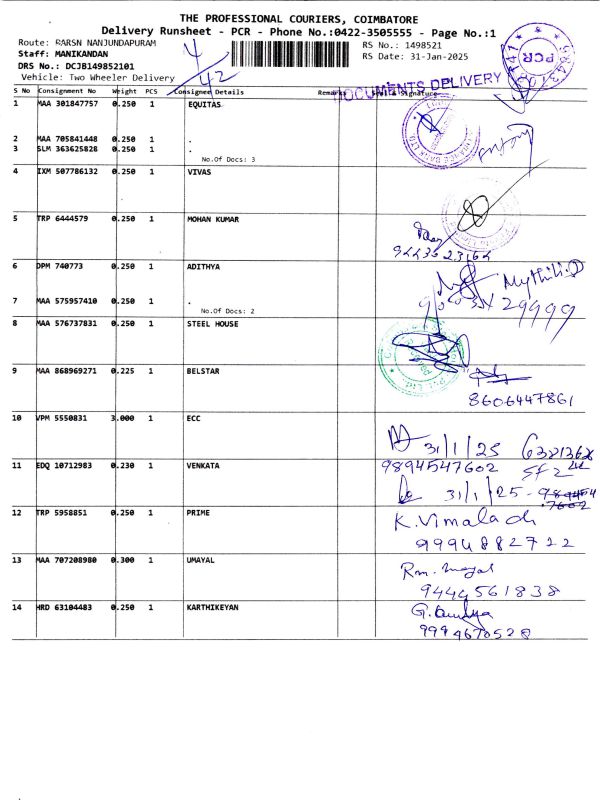 THE PROFESSIONAL COURIERS, COIMBATORE
Delivery Runsheet - PCR - Phone No.:0422-3505555 - Page No.:1
Route: RARSN NANJUNDAPURAM
RS No.: 1498521
Staff: MANIKANDAN
RS Date: 31-Jan-2025
DRS No.: DCJB149852101
Vehicle: Two Wheeler Delivery
42
DOCUMENTS DELIVERY
PCR
S No Consignment No Weight PCS Consignee Details Remarks Signature
1 MAA 301847757 0.250 1 EQUITAS
2 MAA 705841448 0.250 1 .
3 SLM 363625828 0.250 1 .
No.Of Docs: 3
4 IXM 507786132 0.250 1 VIVAS
5 TRP 6444579 0.250 1 MOHAN KUMAR
6 DPM 740773 0.250 1 ADITHYA
Mythili.D
7 MAA 575957410 0.250 1 .
No.Of Docs: 2
8 MAA 576737831 0.250 1 STEEL HOUSE
9 MAA 868969271 0.225 1 BELSTAR
8606447861
10 VPM 5550831 3.000 1 ECC
31/1/25
11 EDQ 10712983 0.230 1 VENKATA
9894547602
31/1/25
12 TRP 5958851 0.250 1 PRIME
K.Vimaladi
9994882722
13 MAA 707208980 0.300 1 UMAYAL
9444561838
14 HRD 63104483 0.250 1 KARTHIKEYAN
9994670528